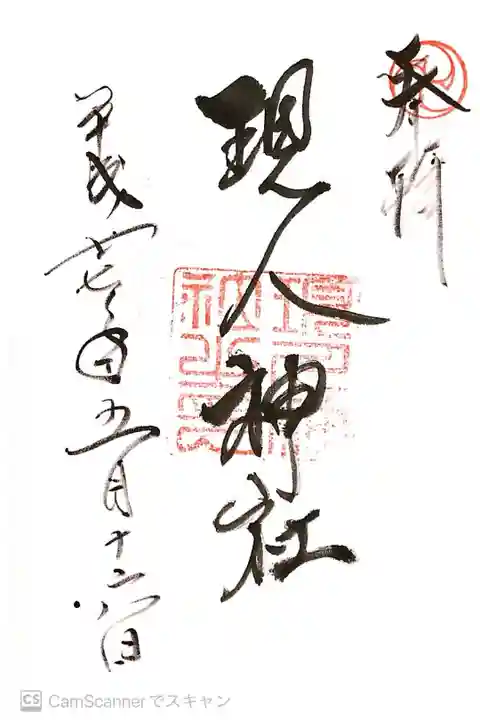 奉拝
現人神社
平成廿七年五月十六日
CS CamScannerでスキャン